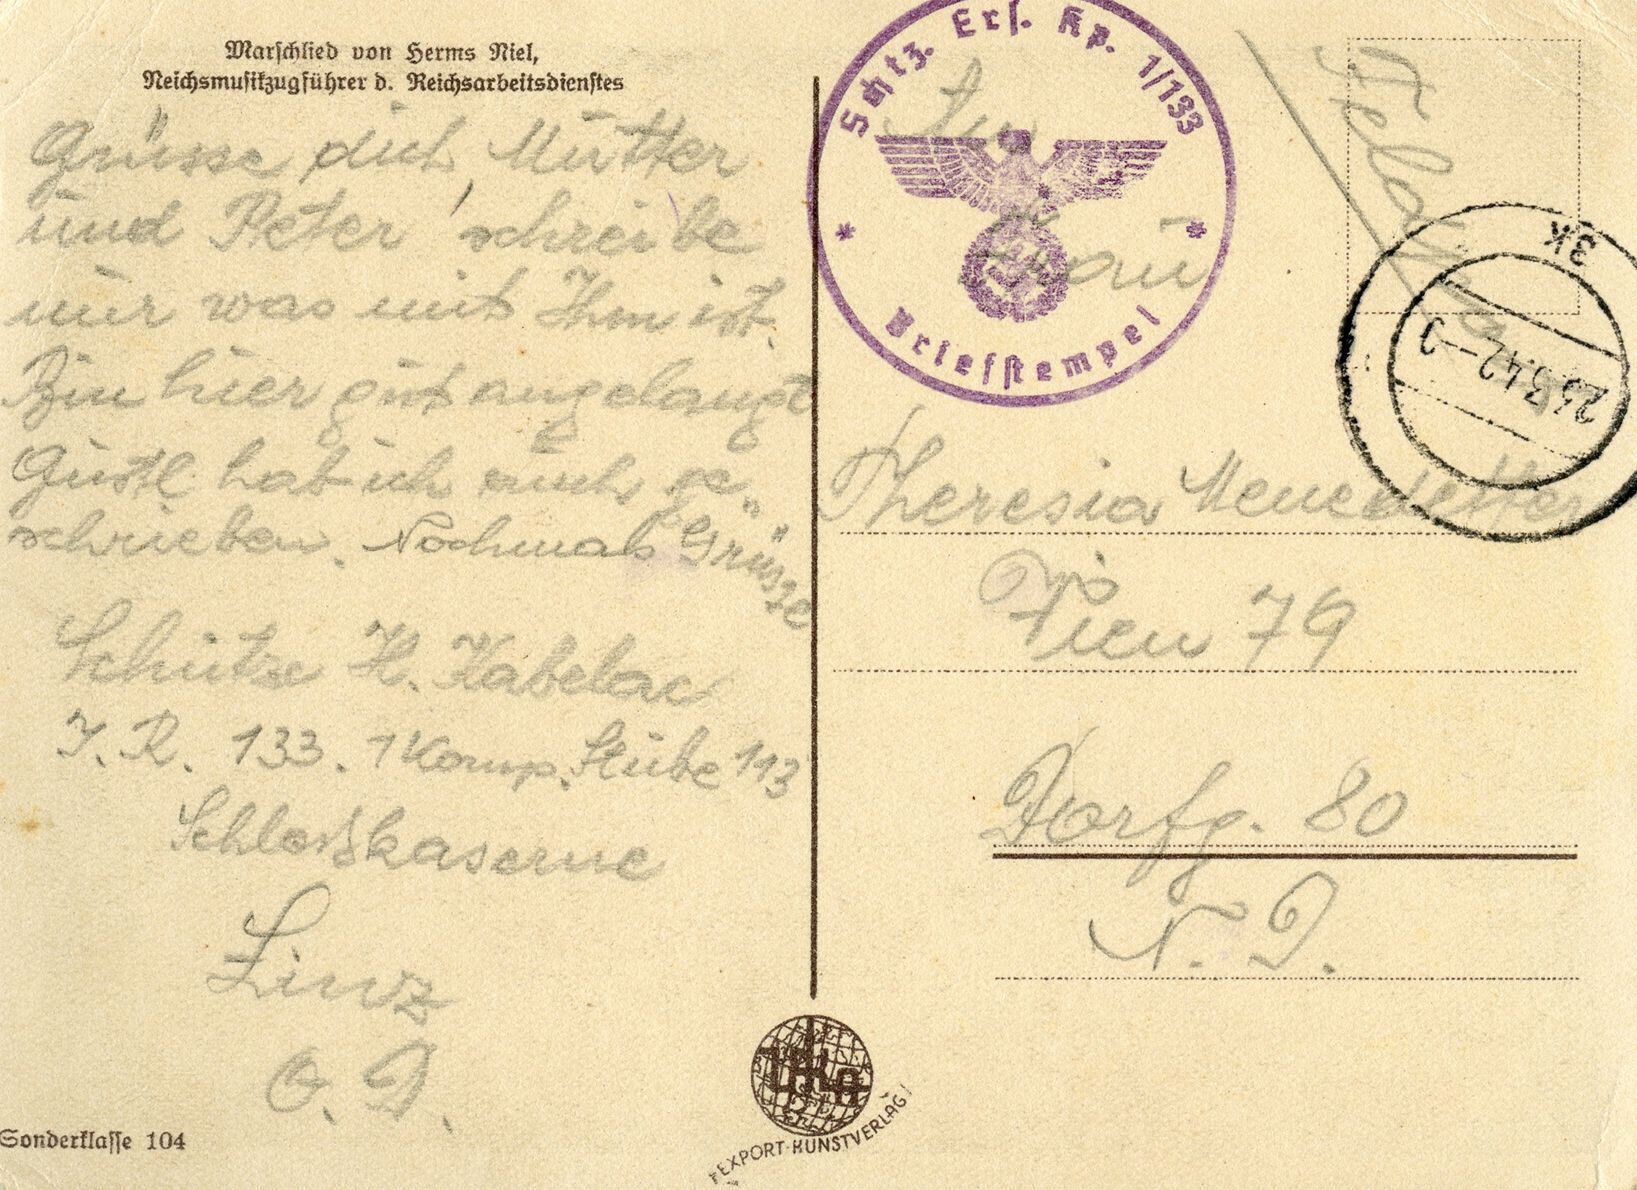 Marschlied von Herms Niel,
Reichsmusikzugführer d. Reichsarbeitsdienstes
Grüsse dich, Mutter
und Peter, schreibe
mir was mit Ihm ist.
Bin hier gut angelangt
Gustl hab ich auch ge-
schrieben. Nochmals Grüsse
Schütze H. Kabelac
I. R. 133. 1 Komp. Stube 113
Schlosskaserne
Linz
O. D.
Sonderklasse 104
Schtz. Ers. Kp. 1/133
Briefstempel
Feldpost
3K
23.3.42-9
An
Frau
Theresia Menedetter
Wien 79
Dorfg. 80
N. D.
EXPORT-KUNSTVERLAG